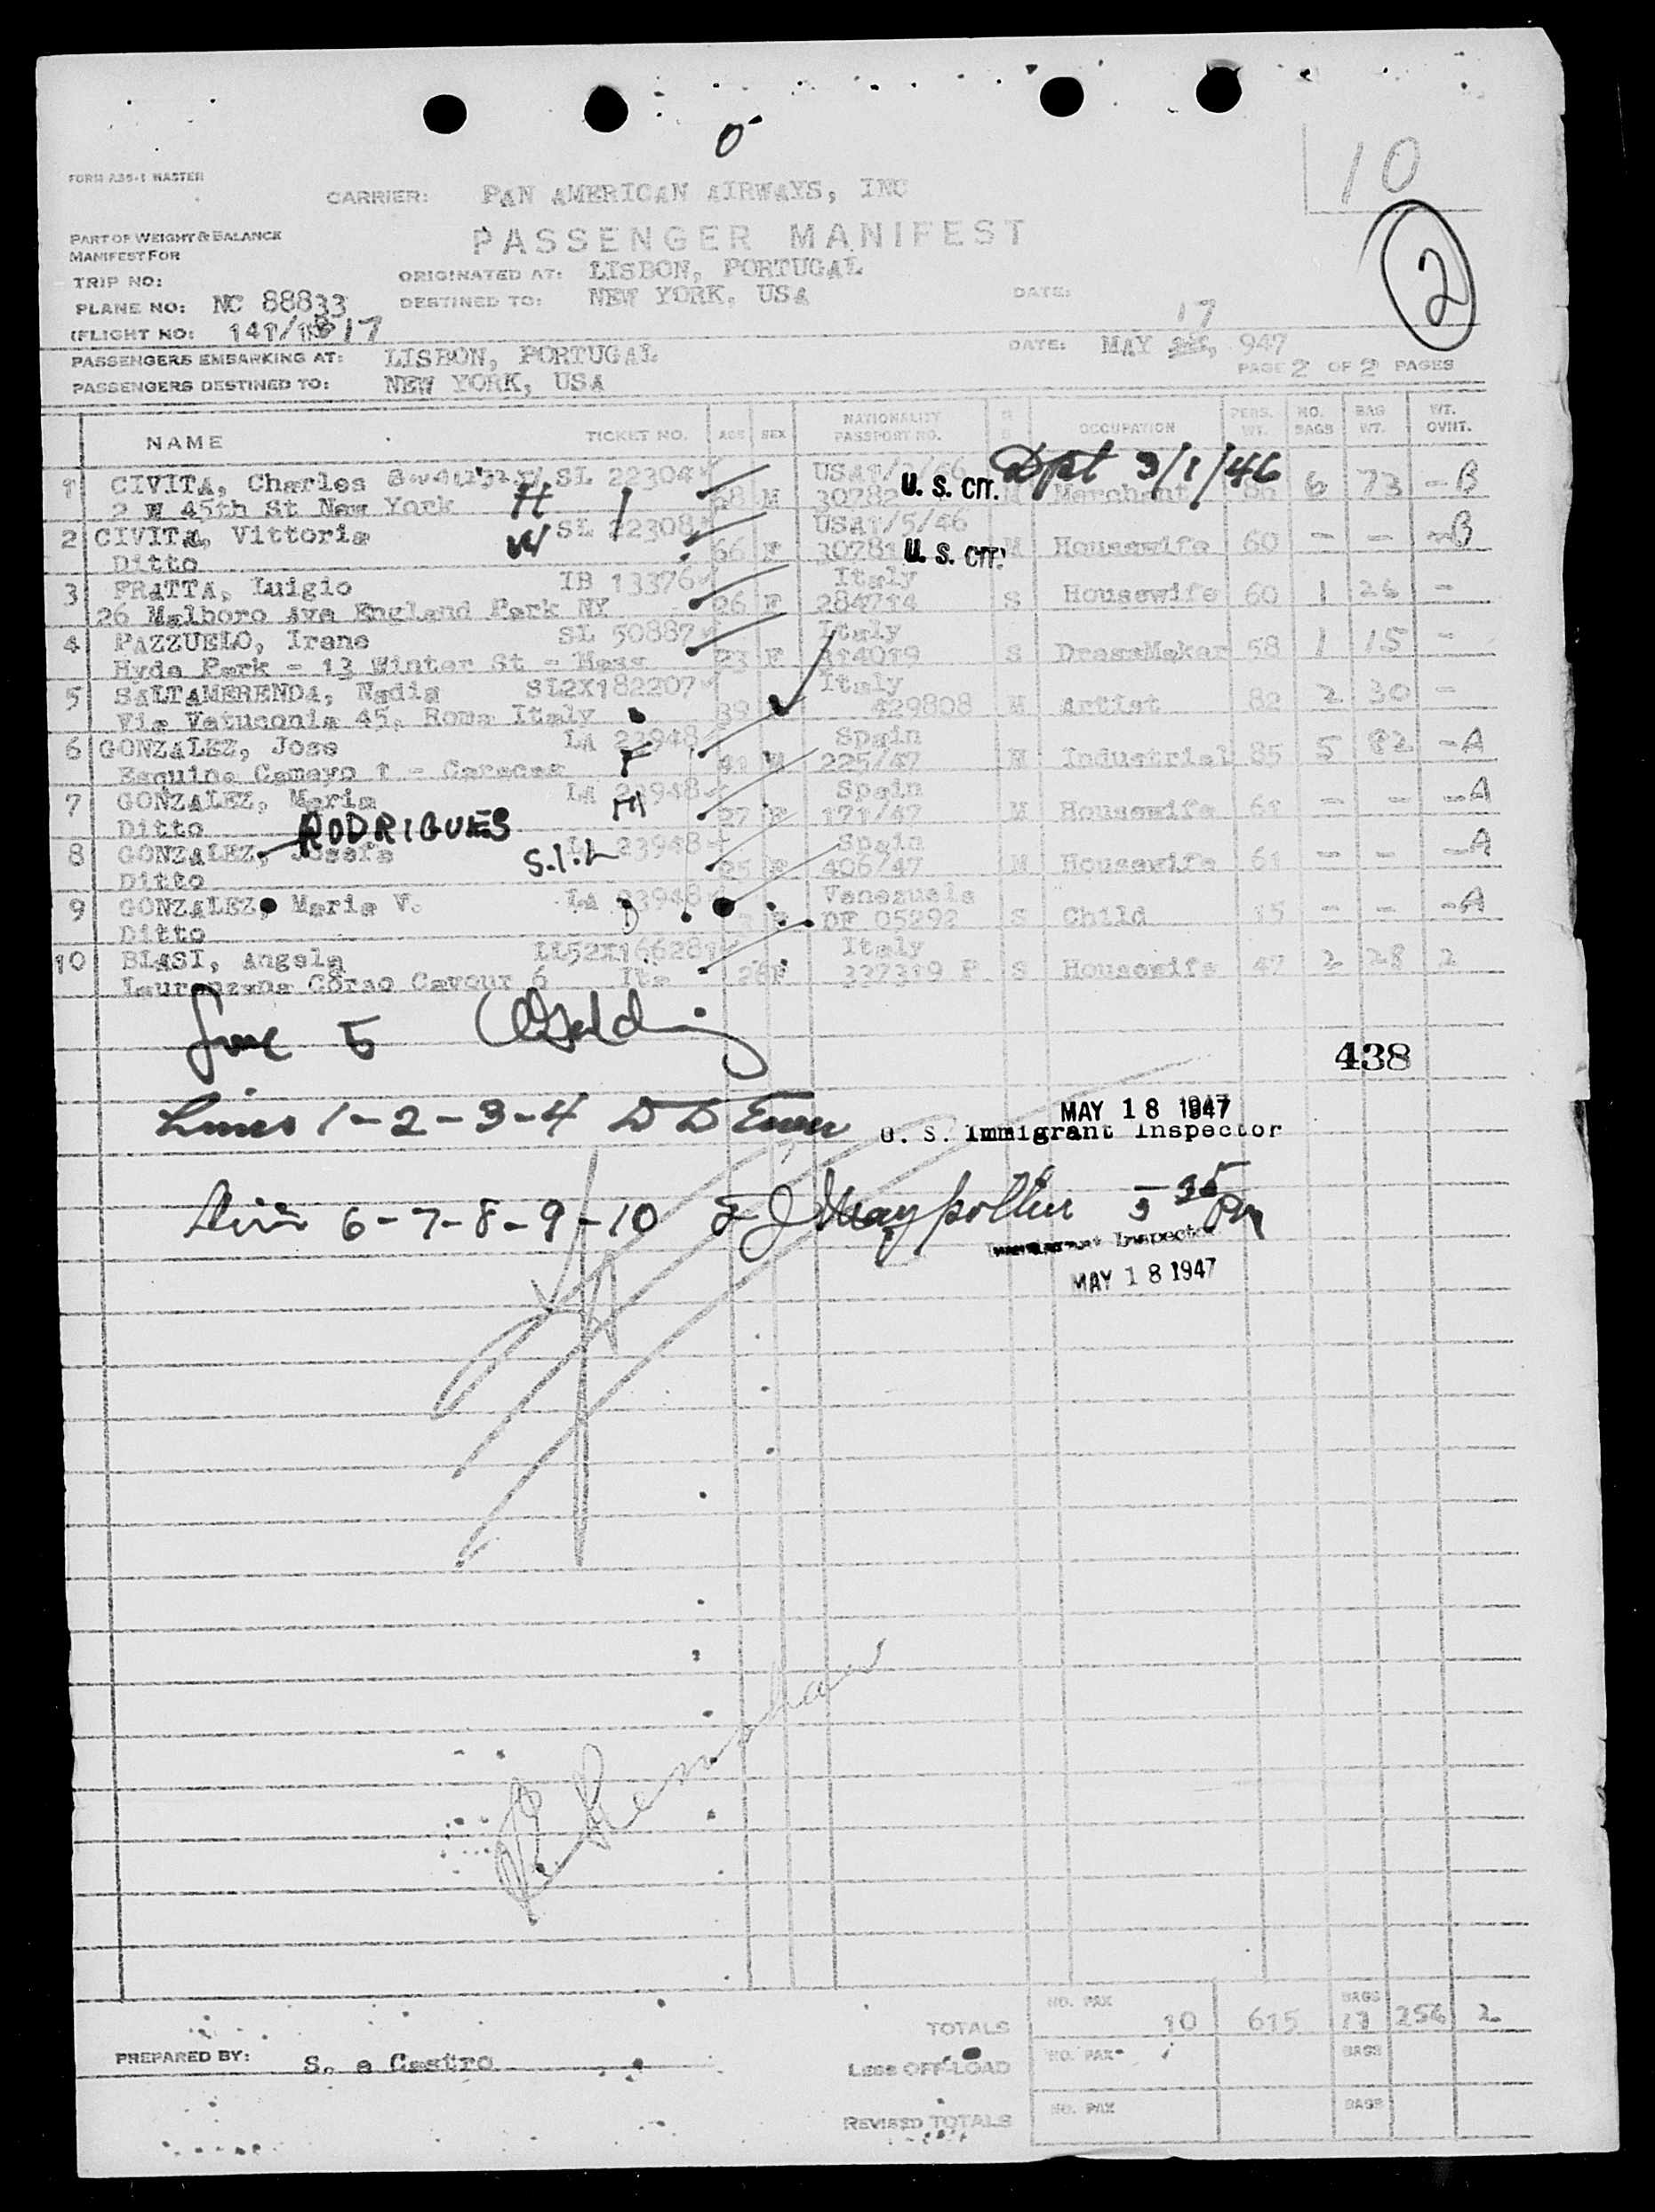 10
FORM ABS-1 MASTER
CARRIER: PAN AMERICAN AIRWAYS, INC
2
PART OF WEIGHT & BALANCE
MANIFEST FOR
PASSENGER MANIFEST
TRIP NO:
ORIGINATED AT: LISBON, PORTUGAL
DATE:
PLANE NO: NC 88833
DESTINED TO: NEW YORK, USA
17
FLIGHT NO: 141/ 17
PASSENGERS EMBARKING AT: LISBON, PORTUGAL
DATE: MAY 947
PASSENGERS DESTINED TO: NEW YORK, USA
PAGE 2 OF 2 PAGES
NAME TICKET NO. AGE SEX NATIONALITY PASSPORT NO. M S OCCUPATION PERS. WT. NO. BAGS BAG WT. WT. OVHT.
1 CIVITA, Charles SL 22304 USA Dpt 3/1/46
2 W 45th St New York H 1 68 M 30782 U. S. CIT. M Merchant 86 6 73 - B
2 CIVITA, Vittoria W SL 22308 USA1/5/46
Ditto 66 F 30781 U. S. CIT. M Housewife 60 - - -B
3 FRATTA, Luigio IB 13376 Italy
26 Malboro Ave England Park NY 26 F 284714 S Housewife 60 1 26 -
4 PAZZUELO, Irene SL 50887 Italy
Hyde Park - 13 Winter St - Mass 23 F 314019 S DressMaker 58 1 15 -
5 SALTAMERENDA, Nadia SL2X182207 Italy
Via Vetusonia 45, Roma Italy 39 429808 M Artist 82 2 30 -
6 GONZALEZ, Jose LA 23948 Spain
Esquina Camayo 1 - Caracas F 41 M 225/47 M Industrial 85 5 82 -A
7 GONZALEZ, Maria LA 23948 Spain
Ditto M 27 F 171/47 M Housewife 61 - - -A
RODRIGUES
8 GONZALEZ, Josefa S.I.L LA 23948 Spain
Ditto 25 F 406/47 M Housewife 61 - - -A
9 GONZALEZ, Maria V. LA 23948 Venezuela
Ditto D 3 F DF 05292 S Child 15 - - -A
10 BLASI, Angela LL52X166281 Italy
Laurenzana Corso Cavour 6 Ita 26 F 337319 P S Housewife 47 2 28 2
Line 5
438
Lines 1-2-3-4 D D
MAY 18 1947
U. S. Immigrant Inspector
6-7-8-9-10 5 35 Pm
Immigrant Inspector
MAY 18 1947
TOTALS NO. PAX 10 615 BAGS 17 254 2
PREPARED BY: S. e Castro
Less OFF-LOAD NO. PAX BAGS
REVISED TOTALS NO. PAX BAGS